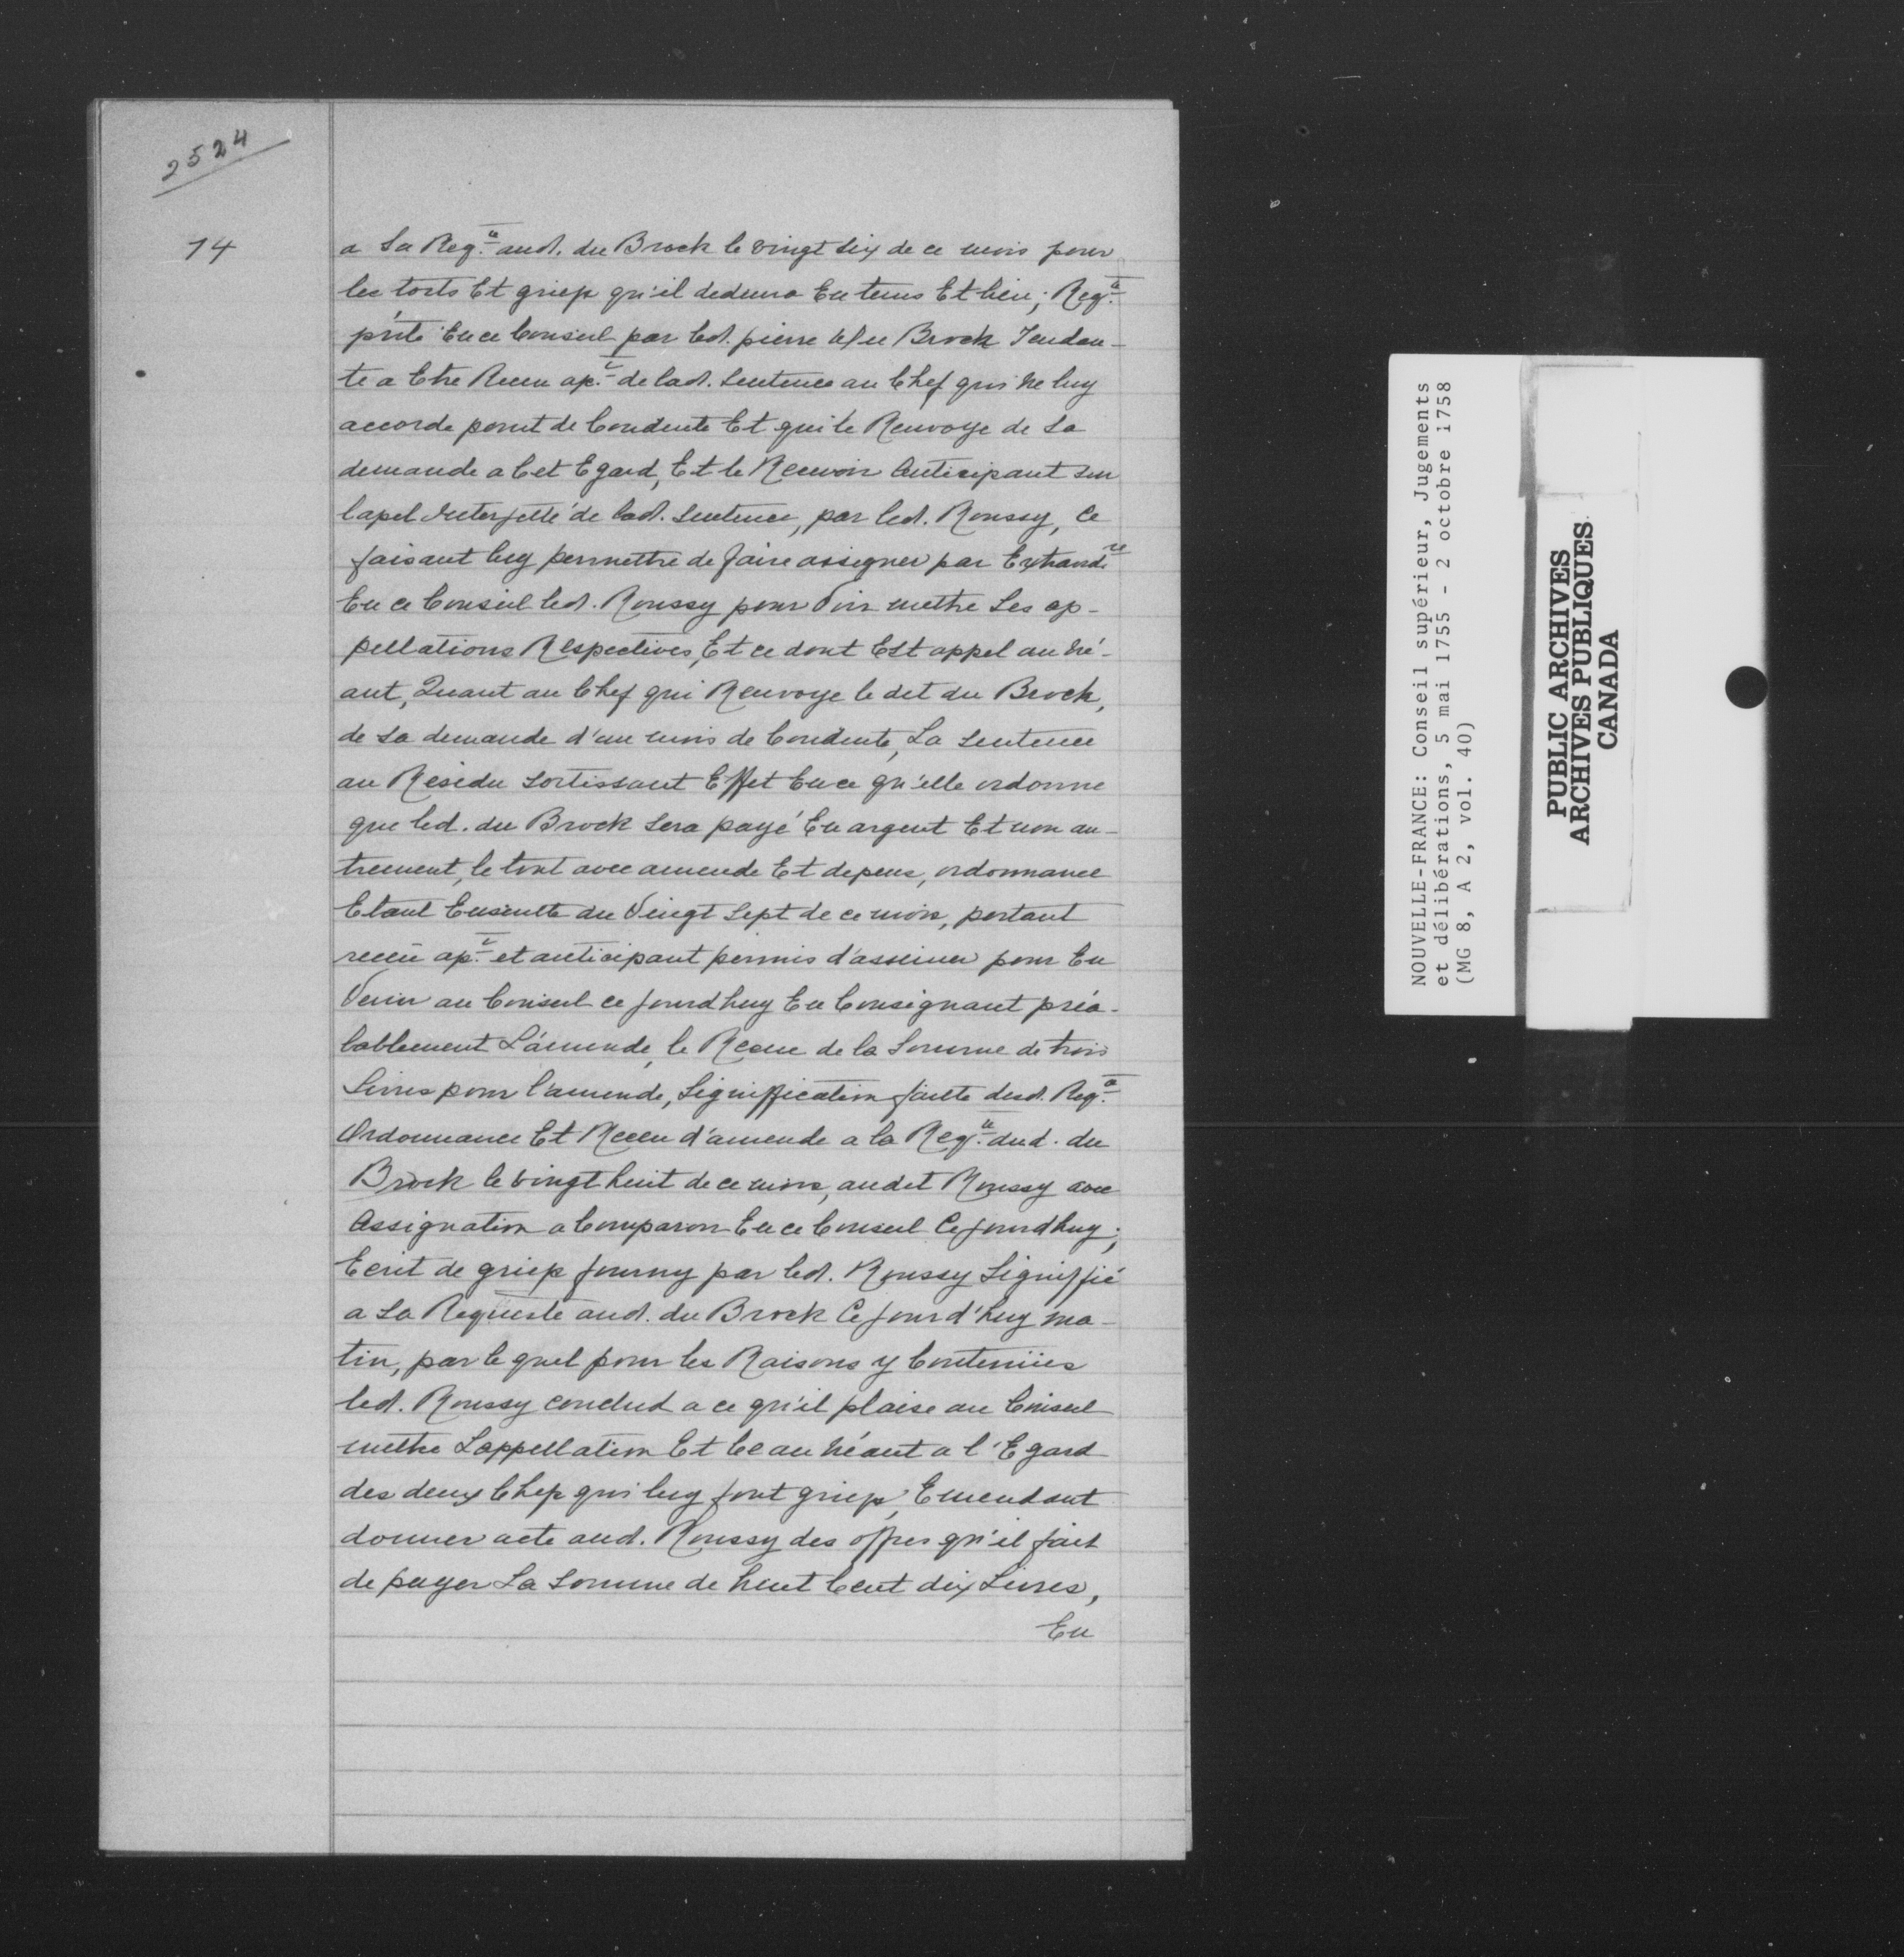 2524
14
a Sa Reqte aud. du Brock le vingt six de ce mois pour
les torts Et griefs qu'il deduira En tems Et lieu; Reqte
pnté En ce Conseil par led. pierre du Brock Tendan-
te a Etre Receu apt de lad. Sentence au Chef qui ne luy
accorde point de Conduite Et qui le Renvoye de Sa
demande a Cet Egard, Et le Recevoir Anticipant sur
lapel Interjetté de lad. Sentence, par led. Roussy, Ce
faisant luy permettre de faire assigner par Extraordre
En ce Conseil led. Roussy pour Voir mettre Les ap-
pellations Respectives, Et ce dont Est appel au né-
ant, Quant au Chef qui Renvoye le dit du Brock,
de sa demande d'un mois de Conduite, La Sentence
au Résidu sortissant Effet En ce qu'elle ordonne
que led. du Brock Sera payé En argent Et non au-
trement, le tout avec amende Et depens, ordonnance
Etant Ensuitte du Vingt Sept de ce mois, portant
receu apt et anticipant permis d'assiner pour En
Venir au Conseil ce jourdhuy En Consignant préa-
lablement L'amende, le Receu de la Somme de trois
Livres pour l'amende, Signiffication faitte desd. Reqte
Ordonnance Et Receu d'amende a la Reqte dud. du
Brock le vingt huit de ce mois, audit Roussy avec
Assignation a Comparoir En ce Conseil Ce jourdhuy;
Ecrit de griefs fourny par led. Roussy Signiffié
a Sa Requeste aud. du Brock Ce jour d'huy ma-
tin, par lequel pour les Raisons y Contenües
led. Roussy conclud a ce qu'il plaise au Conseil
mettre Lappellation Et Ce au néant a l'Egard
des deux Chefs qui luy font griefs, Emendant
donner acte aud. Roussy des offres qu'il fait
de payer La Somme de huit Cent dix Livres,
En
NOUVELLE-FRANCE: Conseil supérieur, Jugements
et délibérations, 5 mai 1755 - 2 octobre 1758
(MG 8, A 2, vol. 40)
PUBLIC ARCHIVES
ARCHIVES PUBLIQUES
CANADA